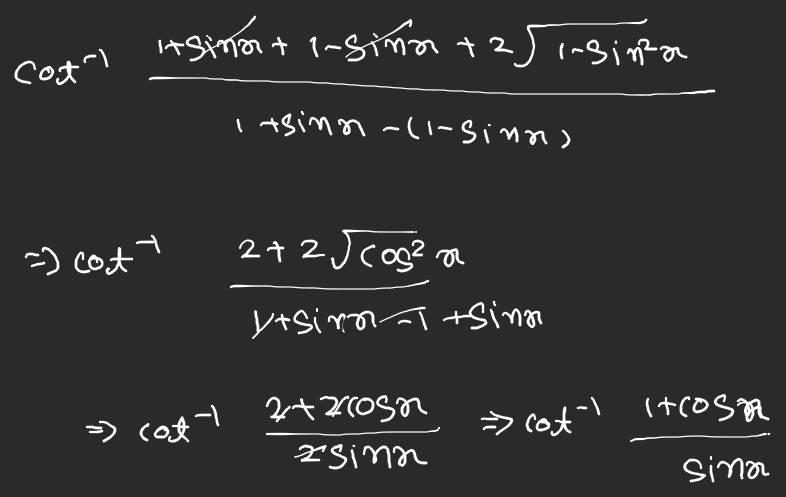 cot⁻¹ (1+sinx + 1-sinx + 2√(1-sin²x)) / (1+sinx -(1-sinx))
=> cot⁻¹ (2+2√(cos²x)) / (1+sinx-1+sinx)
=> cot⁻¹ (2+2cosx) / (2sinx) => cot⁻¹ (1+cosx) / (sinx)